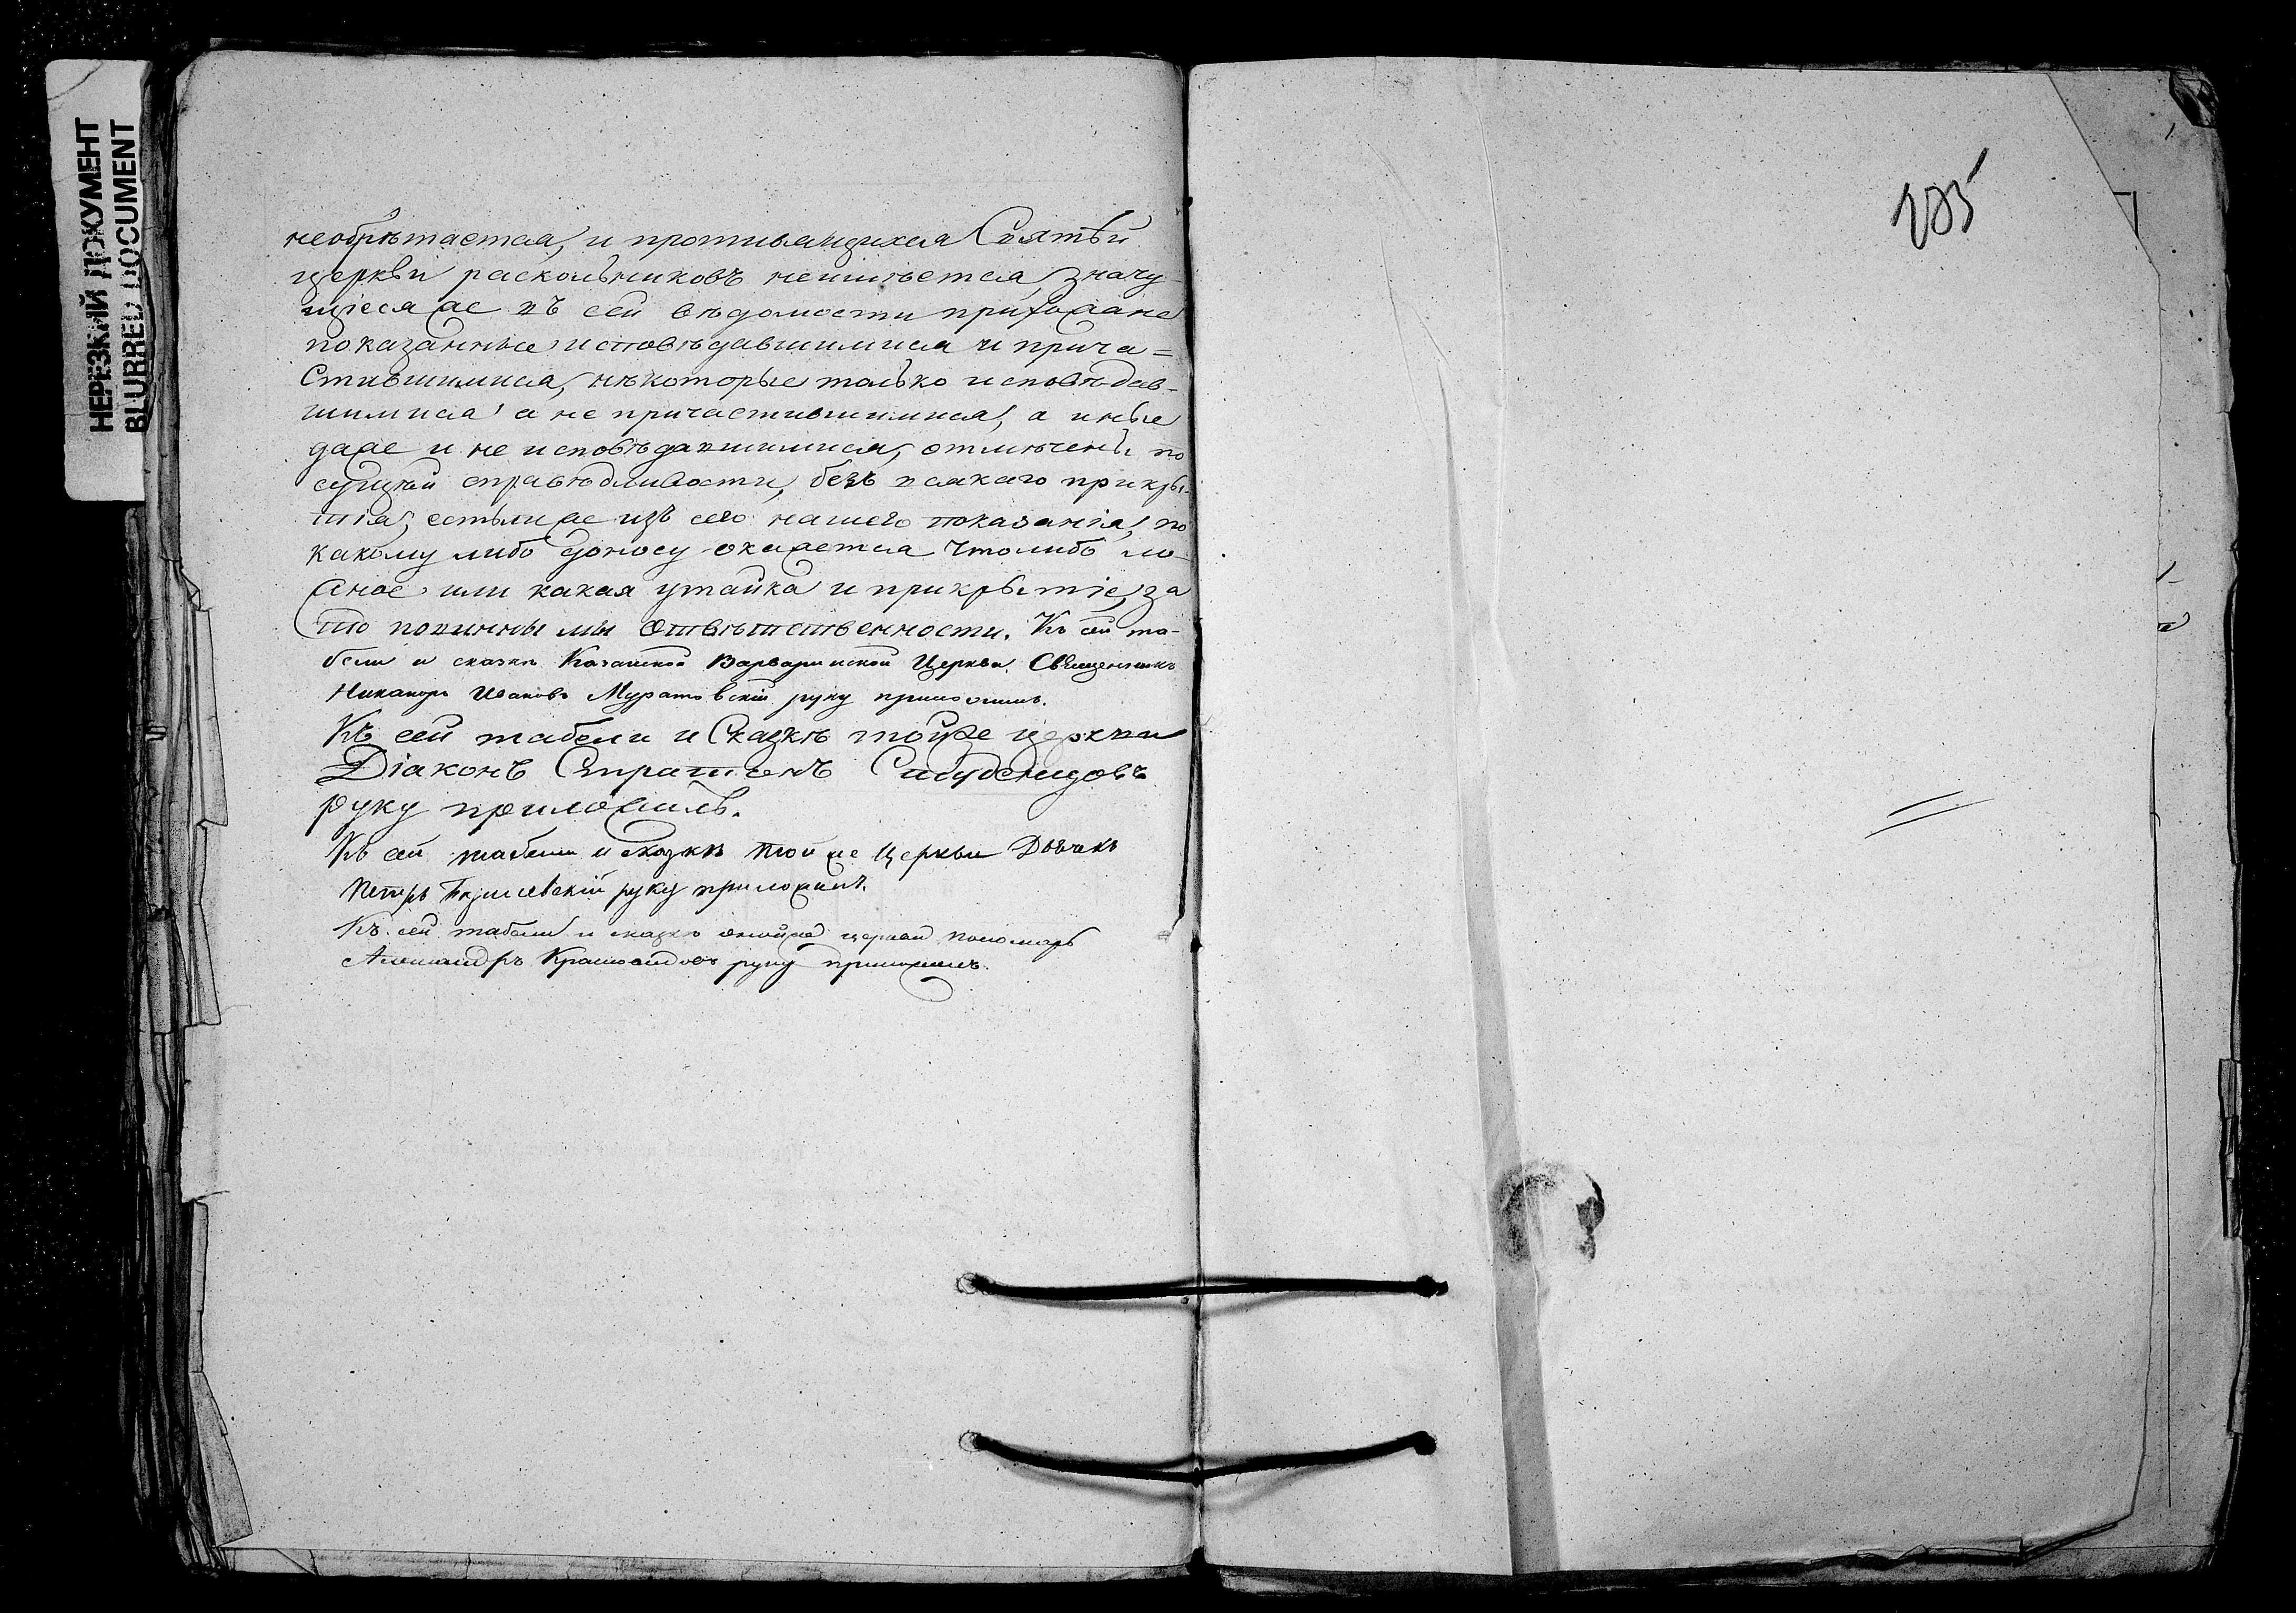 НЕРЕЗКИЙ ДОКУМЕНТ
BLURRED DOCUMENT
необрѣтается, и противящихся Святѣй
церкви раскольниковъ неимѣется, значу-
щіеся же въ сей вѣдомости прихожане
показанные исповѣдавшимися и прича=
стившимися, нѣкоторые только исповѣдав-
шимися а не причастившимися, а иные
даже и не исповѣдавшимися, отмѣчены по
сущей справѣдливости, безъ всякаго прикры-
тія, естьли же изъ сего нашего показанія, по
какому либо доносу окажется чтолибо ло-
жное или какая утайка и прикрытіе, за
то повинны мы отвѣтственности. Къ сей та-
бели и сказкѣ Казанской Варваринской Церкви Священникъ
Никаноръ Ивановъ Муратовскій руку приложилъ.
Къ сей табели и сказкѣ тойже церкви
Діаконъ руку
руку приложилъ.
Къ сей табели и сказкѣ той же Церкви Дьячекъ
Петръ руку приложилъ.
Къ сей табели и сказкѣ оной же церкви пономарь
Александръ руку приложилъ.
205